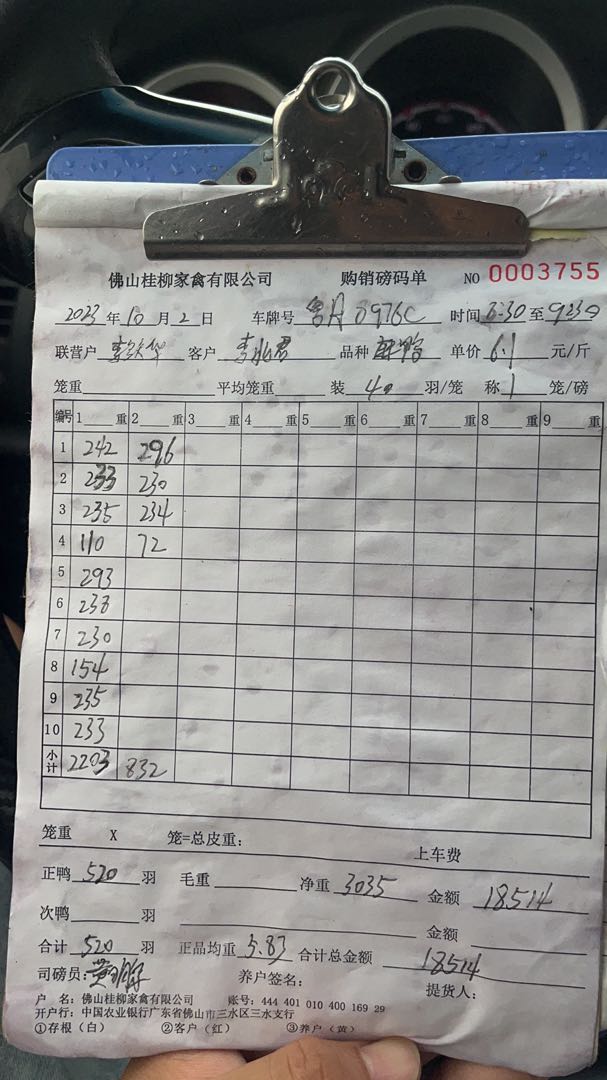 佛山桂柳家禽有限公司 购销磅码单 NO 0003755
2023 年 10 月 2 日 车牌号 0976C 时间 6:30 至
联营户 客户 品种 单价 6.1 元/斤
笼重 平均笼重 装 40 羽/笼 称 1 笼/磅
编号 1 重 2 重 3 重 4 重 5 重 6 重 7 重 8 重 9 重
1 242 296
2 233 230
3 235 234
4 110 72
5 293
6 238
7 230
8 154
9 235
10 233
小计 2203 832
笼重 X 笼=总皮重: 上车费
正鸭 520 羽 毛重 净重 3035 金额 18514
次鸭 羽 金额
合计 520 羽 正品均重 5.83 合计总金额 18514
司磅员: 养户签名: 提货人:
户 名: 佛山桂柳家禽有限公司 账号: 444 401 010 400 169 29
开户行: 中国农业银行广东省佛山市三水区三水支行
①存根(白) ②客户(红) ③养户(黄)